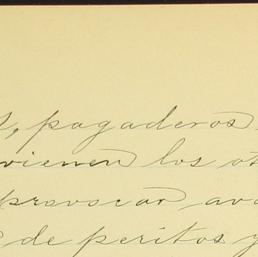 , pagaderos
vienen los ot
provocar ava
de peritos y